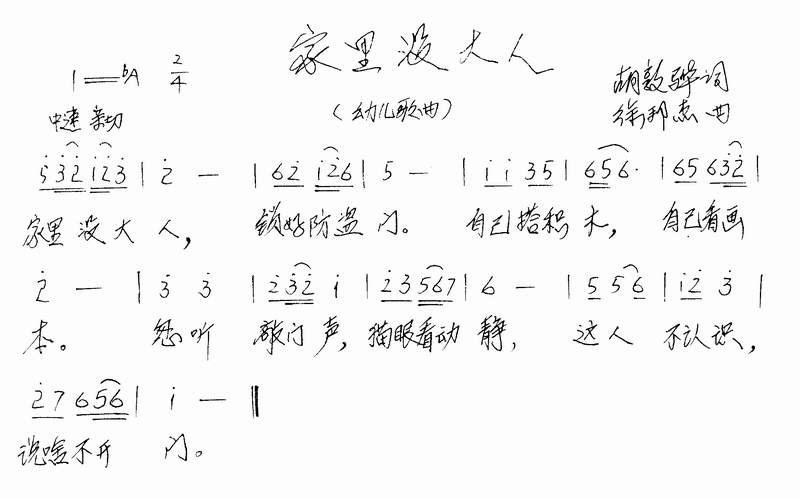 家里没大人
1=♭A 2/4
胡敦骅词
中速 亲切
(幼儿歌曲)
徐邦杰曲
5̇ 3̇2̇ 1̇2̇3̇ | 2̇ — | 62̇ 1̇2̇6 | 5 — | 1̇ 1̇ 35 | 656· | 65 632̇ |
家里没大人, 锁好防盗门。 自己搭积木, 自己看画
2̇ — | 3̇ 3̇ | 2̇3̇2̇ 1̇ | 2̇3 567 | 6 — | 5 56 | 1̇2̇ 3̇ |
本。 忽听敲门声, 猫眼看动静, 这人不认识,
2̇7 656 | 1̇ — ‖
说啥不开门。